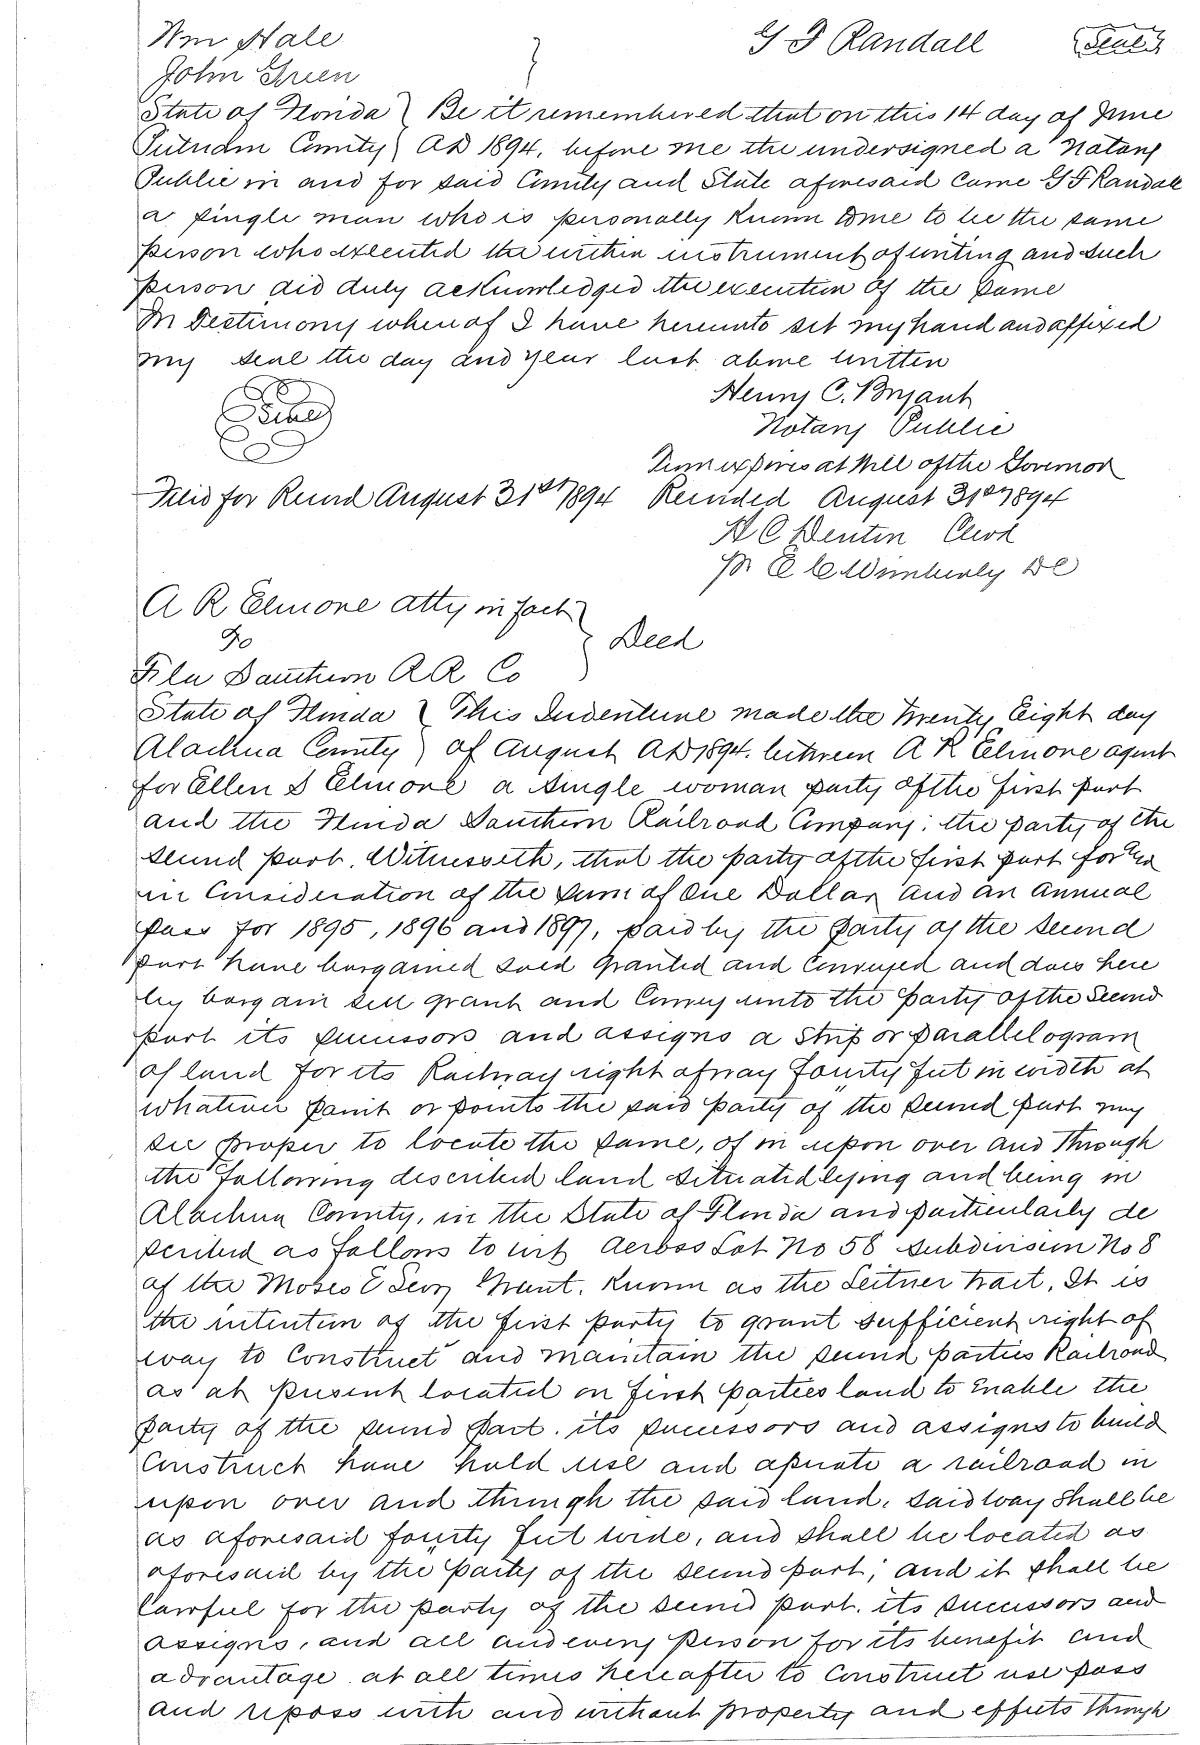 Wm Hale } G F Randall (Seal)
John Green
State of Florida } Be it remembered that on this 14 day of June
Putnam County } AD 1894, before me the undersigned a Notary
Public in and for said County and State aforesaid came G F Randall
a single man who is personally known to me to be the same
person who executed the within instrument of writing and such
person did duly acknowledged the execution of the same
In Testimony whereof I have hereunto set my hand and affixed
my seal the day and year last above written
Henry C. Bryant
(Seal)
Notary Public
Term expires at Will of the Governor
Filed for Record August 31st 1894 Recorded August 31st 1894
H C Denton Clerk
Pr E C Wimberly DC
A R Elmore atty in fact }
To } Deed
Fla Southern R R Co
State of Florida } This Indenture made the Twenty Eight day
Alachua County } of August AD 1894. between A R Elmore agent
for Ellen S Elmore a single woman party of the first part
and the Florida Southern Railroad Company; the party of the
second part. Witnesseth, that the party of the first part for and
in Consideration of the sum of One Dollar and an annual
pass for 1895, 1896 and 1897, paid by the party of the second
part have bargained sold granted and conveyed and does here
by bargain sell grant and Convey unto the party of the second
part its successors and assigns a strip or parallelogram
of land for its Railway right of way fourty feet in width at
whatever point or points the said party of the second part may
see proper to locate the same, of in upon over and through
the following described land situated lying and being in
Alachua County, in the State of Florida and particularly de
scribed as follows to wit Across Lot No 58 subdivision No 8
of the Moses E Levy Grant. Known as the Leitner tract. It is
the intention of the first party to grant sufficient right of
way to Construct and maintain the second parties Railroad
as at present located on first parties land to Enable the
party of the second part. its successors and assigns to build
Construct have hold use and operate a railroad in
upon over and through the said land. said way shall be
as aforesaid fourty feet wide, and shall be located as
aforesaid by the party of the second part; and it shall be
lawful for the party of the second part. its successors and
assigns, and all and every person for its benefit and
advantage at all times hereafter to construct use pass
and repass with and without property and effects through